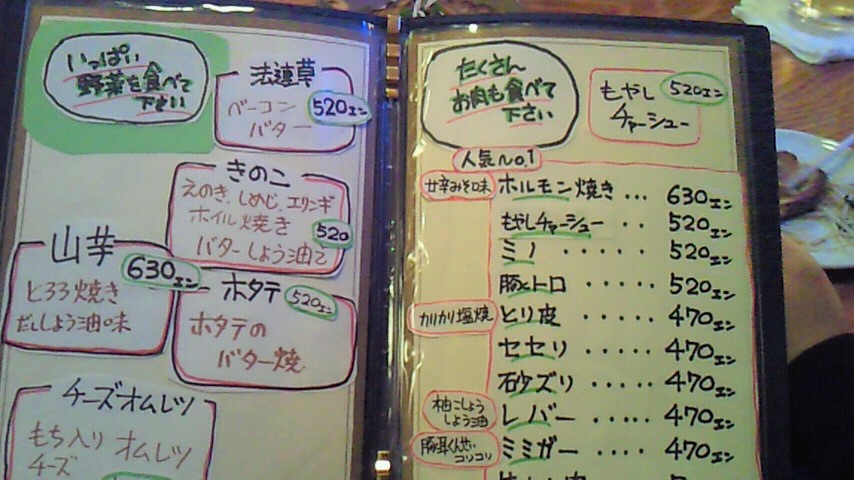 いっぱい
野菜を食べて
下さい
法連草
ベーコン
バター
520エン
きのこ
えのき、しめじ、エリンギ
ホイル焼き
バターしょう油で
520
山芋
630エン
とろろ焼き
だししょう油味
ホタテ
520エン
ホタテの
バター焼
チーズオムレツ
もち入りオムレツ
チーズ
たくさん
お肉も食べて
下さい
もやし
チャーシュー
520エン
人気No.1
甘辛みそ味
ホルモン焼き … 630エン
もやしチャーシュー ‥ 520エン
ミノ ‥‥‥ 520エン
豚トロ ‥‥‥ 520エン
カリカリ塩焼
とり皮 ‥‥‥ 470エン
セセリ ‥‥‥ 470エン
砂ズリ ‥‥‥ 470エン
柚こしょう
しょう油
レバー ‥‥‥ 470エン
豚耳くんせい
コリコリ
ミミガー ‥‥‥ 470エン